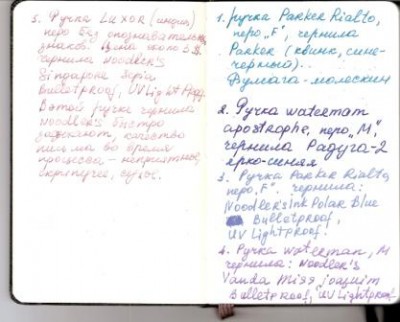 5. Ручка Luxor (индия),
перо без опознавательн.
знаков. Цена около 5$.
чернила Noodler's
Singapore серии
Bulletproof, UV Light Proof
В этой ручке чернила
Noodler's быстро
качество
письма во время
процесса - неприятное,
скрипучее, сухое.
1. ручка Parker Rialto,
перо „F", чернила
Parker (квинк, сине-
чёрный).
Бумага - молескин
2. Ручка waterman
apostrophe, перо „M",
чернила Радуга-2
ярко-синяя
3. Ручка Parker Rialto,
перо „F". чернила:
Noodler'sink Polar Blue
Bulletproof,
UV Lightproof.
4. Ручка waterman, M
чернила: Noodler's
Vanda Miss joaquim
Bulletproof, UV Lightproof